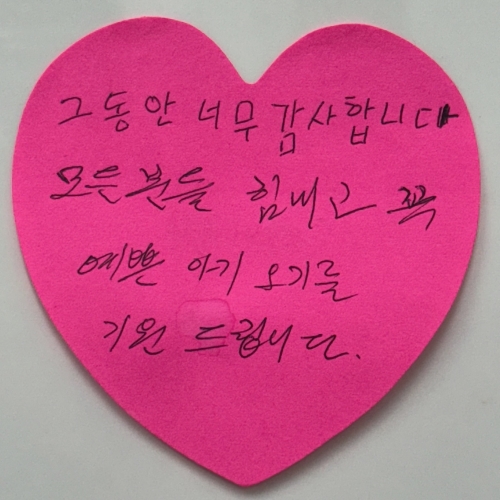 그동안 너무 감사합니다
모든분들 힘내고 꼭
예쁜 아기 오기를
기원 드립니다.